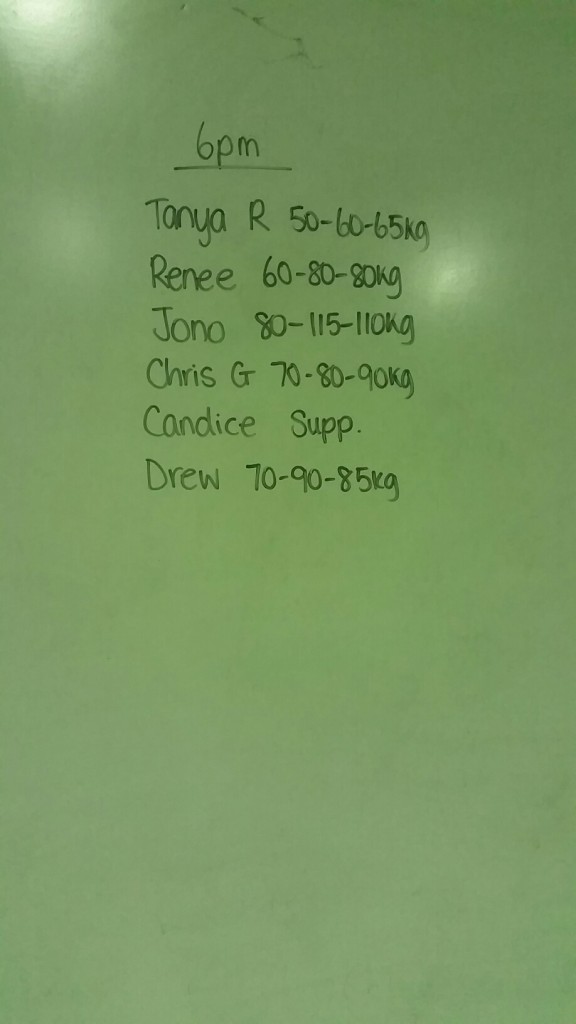 6pm
Tanya R 50-60-65kg
Renee 60-80-80kg
Jono 80-115-110kg
Chris G 70-80-90kg
Candice Supp.
Drew 70-90-85kg